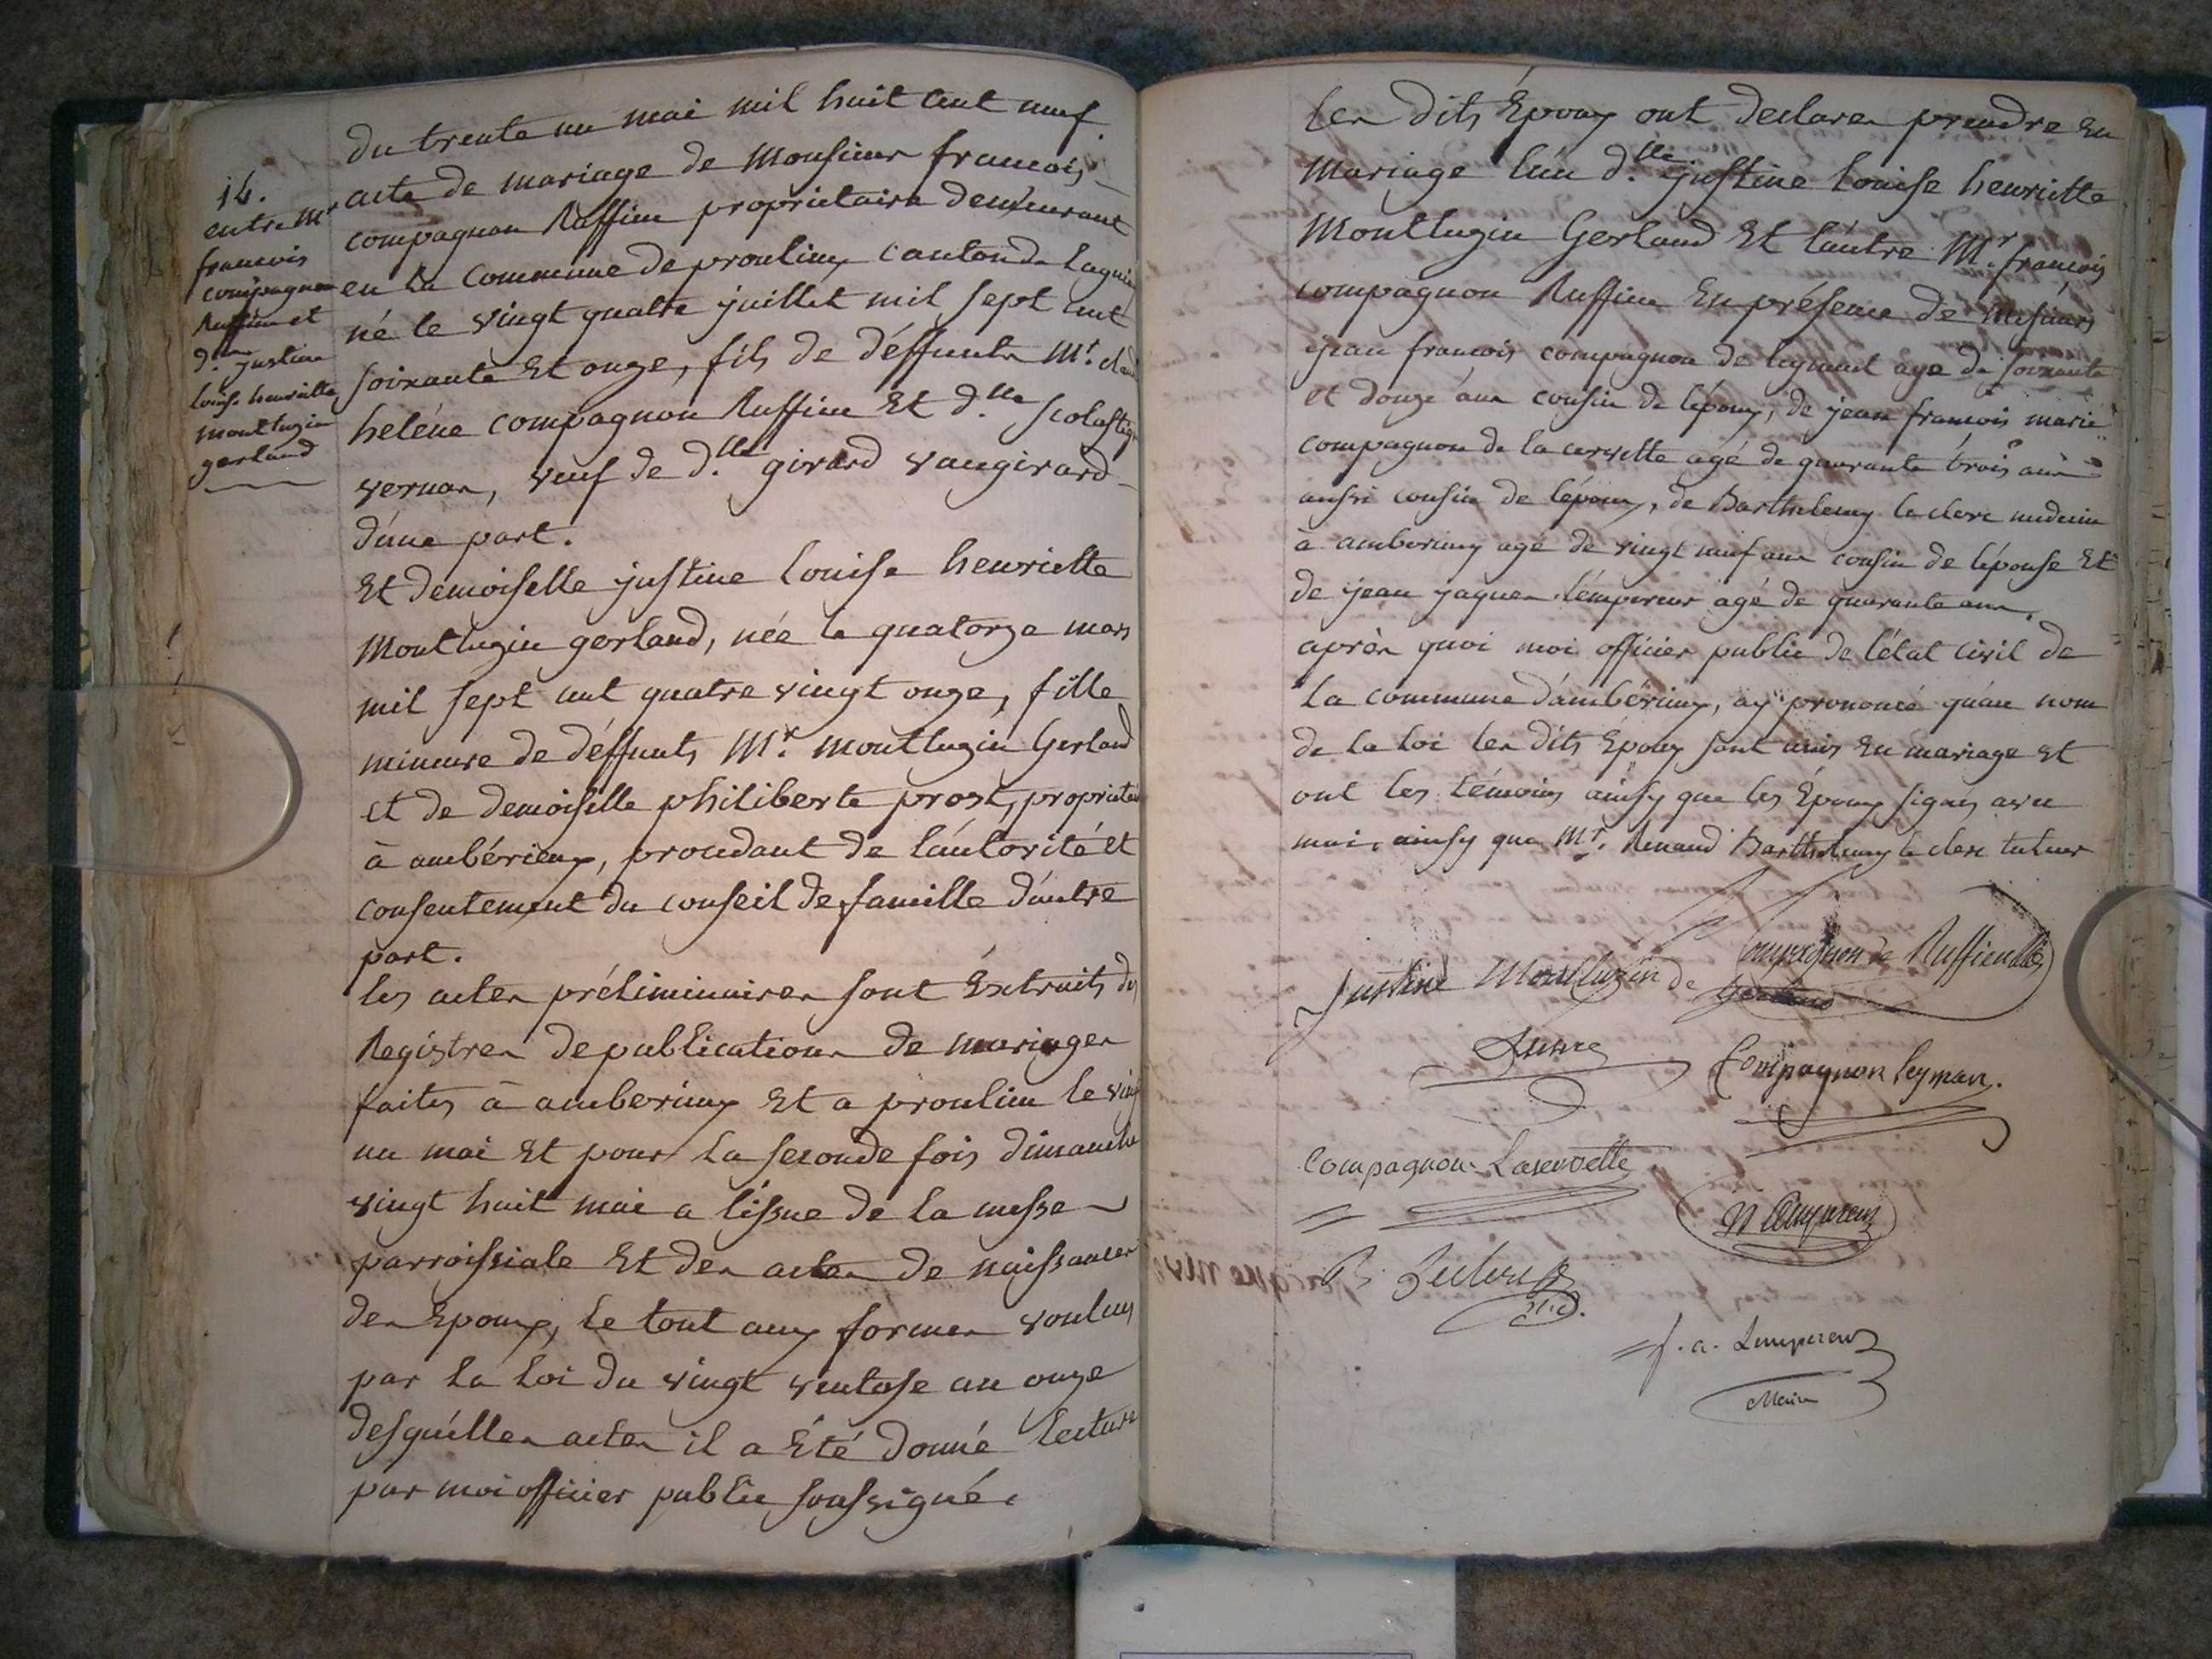 14.
entre Mr
francois
compagnon
Ruffieu et
d.lle justine
louise henriette
montluzin
gerland
du trente un mai mil huit cent neuf.
acte de mariage de Monsieur francois
compagnon Ruffieu propriétaire demeurant
en la Commune de proulieu canton de Lagnieu
né le vingt quatre juillet mil sept cent
soixante et onze, fils de déffunts Mr. claude
heléne compagnon Ruffieu Et d.lle scolastique
vernan, veuf de d.lle girard vaugirard
d'une part.
Et demoiselle justine louise henriette
Montluzin gerland, née le quatorze mars
mil sept cent quatre vingt onze, fille
mineure de déffunts Mr. montluzin Gerland
et de demoiselle philiberte prost, propriétaire
à ambérieux, procedant de l'autorité et
consentement du conseil de famille d'autre
part.
les actes préliminaires sont Extraits des
Registres de publications de mariages
faites à amberieux Et a proulieu le vingt
un mai Et pour la seconde fois dimanche
vingt huit mai a l'issue de la messe
parroissiale Et des actes de naissances
des Epoux, le tout aux formes voulues
par la loi du vingt ventose an onze
desquelles actes il a Eté donné lecture
par moi officier public soussigné.
les dits Époux ont declarer prendre en
Mariage l'un d.lle justine louise henriette
Montluzin Gerland Et l'autre Mr. françois
compagnon Ruffieu En présence de Mesieurs
jean francois compagnon de leymant age de soixante
et douze ans cousin de l'époux, de jean francois marie
compagnon de la cervette agé de quarante trois ans
aussi cousin de l'époux, de Barthelemy le clerc medecin
à amberieux agé de vingt neuf ans cousin de l'épouse Et
de jean jaques l'empereur agé de quarante ans,
après quoi moi officier public de l'état civil de
la commune d'ambérieux, ay prononcé qu'au nom
de la loi les dits Époux sont unis En mariage et
ont les témoins ainsy que les Époux signés avec
moi, ainsy que Mr. Renaud Barthelemy le clerc tuteur
Compagnon de Ruffieu
Justine Montluzin de gerland
Compagnon Leyman.
Compagnon Laservette
Lempereur
B. Leclerc
f. a. Lempereur
Maire